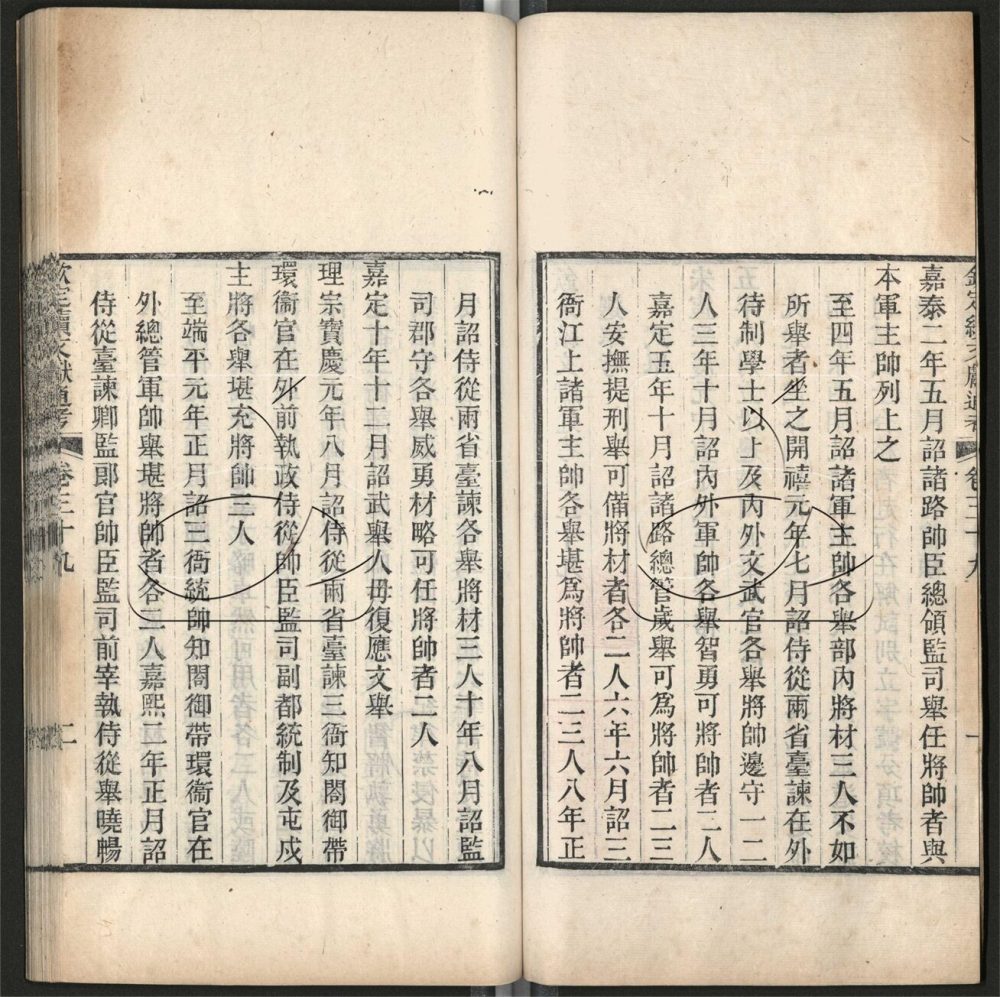 欽定續文獻通考 卷三十九 一
嘉泰二年五月詔諸路帥臣總領監司舉任將帥者與
本軍主帥列上之
至四年五月詔諸軍主帥各舉部內將材三人不如
所舉者坐之開禧元年七月詔侍從兩省臺諫在外
待制學士以上及內外文武官各舉將帥邊守一二
人三年十月詔內外軍帥各舉智勇可將帥者二人
嘉定五年十月詔諸路總管歲舉可爲將帥者二三
人安撫提刑舉可備將材者各二人六年六月詔三
衙江上諸軍主帥各舉堪爲將帥者二三人八年正
月詔侍從兩省臺諫各舉將材三人十年八月詔監
司郡守各舉威勇材略可任將帥者二人
嘉定十年十二月詔武舉人毋復應文舉
理宗寶慶元年八月詔侍從兩省臺諫三衙知閤御帶
環衞官在外前執政侍從帥臣監司副都統制及屯戍
主將各舉堪充將帥三人
至端平元年正月詔三衙統帥知閤御帶環衞官在
外總管軍帥舉堪將帥者各三人嘉熙三年正月詔
侍從臺諫卿監郞官帥臣監司前宰執侍從舉曉暢
欽定續文獻通考 卷三十九 二